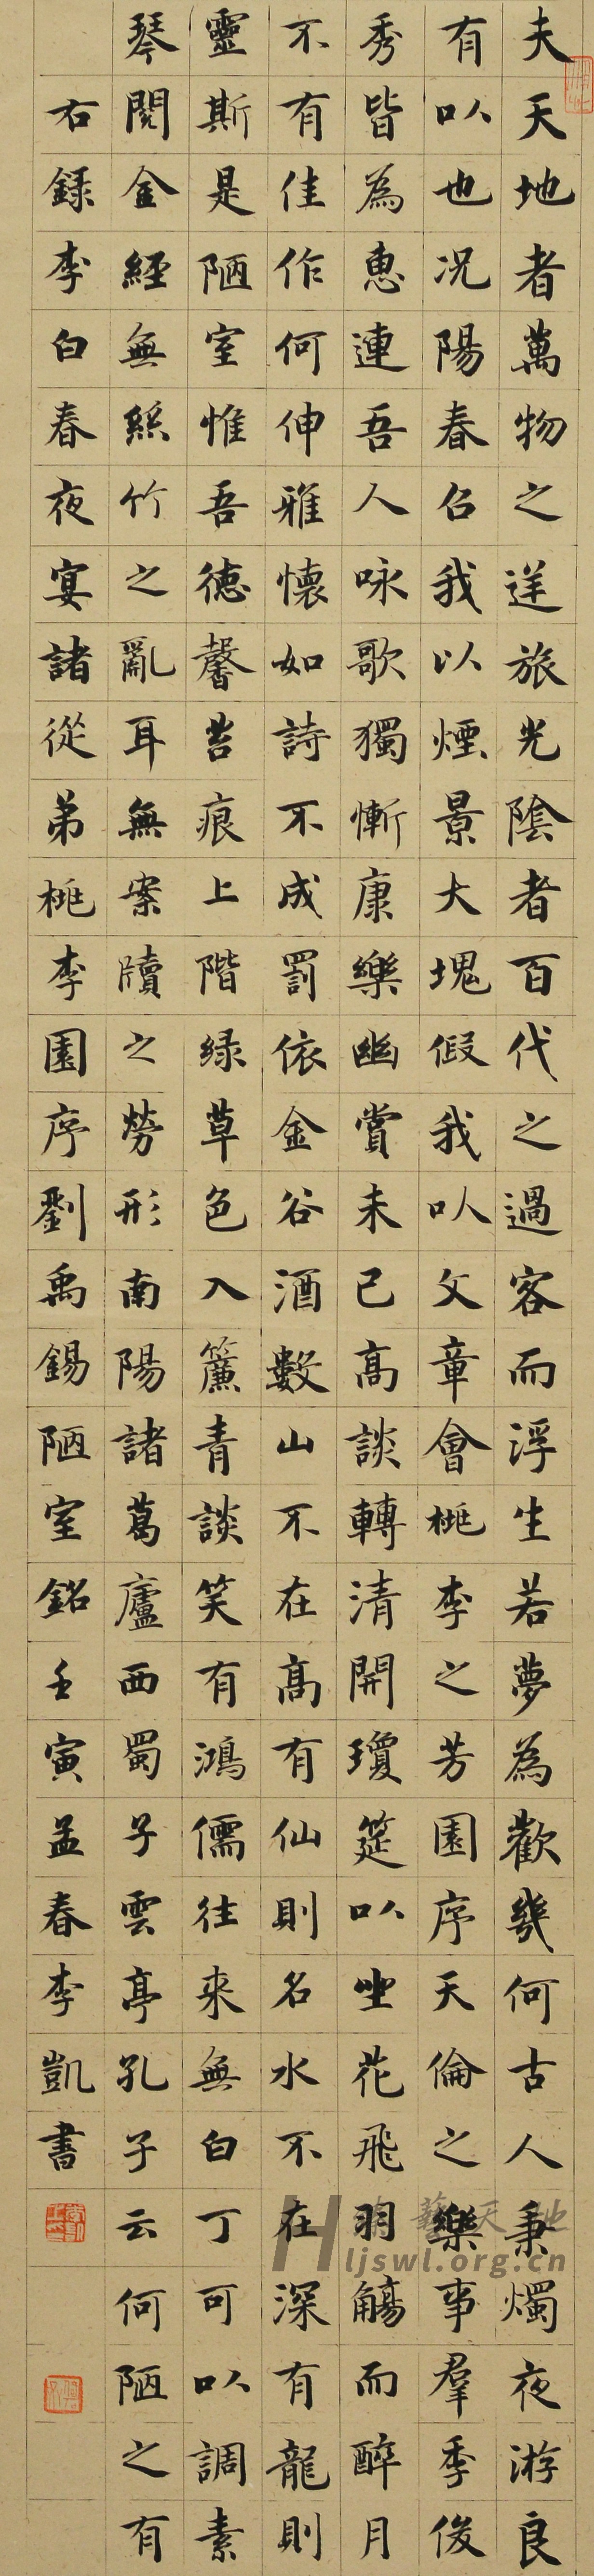 夫天地者萬物之逆旅光陰者百代之過客而浮生若夢為歡幾何古人秉燭夜游良
有以也况陽春召我以煙景大塊假我以文章會桃李之芳園序天倫之樂事羣季俊
秀皆為惠連吾人咏歌獨慚康樂幽賞未已高談轉清開瓊筵以坐花飛羽觴而醉月
不有佳作何伸雅懷如詩不成罰依金谷酒數山不在高有仙則名水不在深有龍則
靈斯是陋室惟吾德馨苔痕上階緑草色入簾青談笑有鴻儒往来無白丁可以調素
琴閱金經無絲竹之亂耳無案牘之勞形南陽諸葛廬西蜀子雲亭孔子云何陋之有
右録李白春夜宴諸從弟桃李園序劉禹錫陋室銘壬寅孟春李凱書
藝天地
Hljswl.org.cn